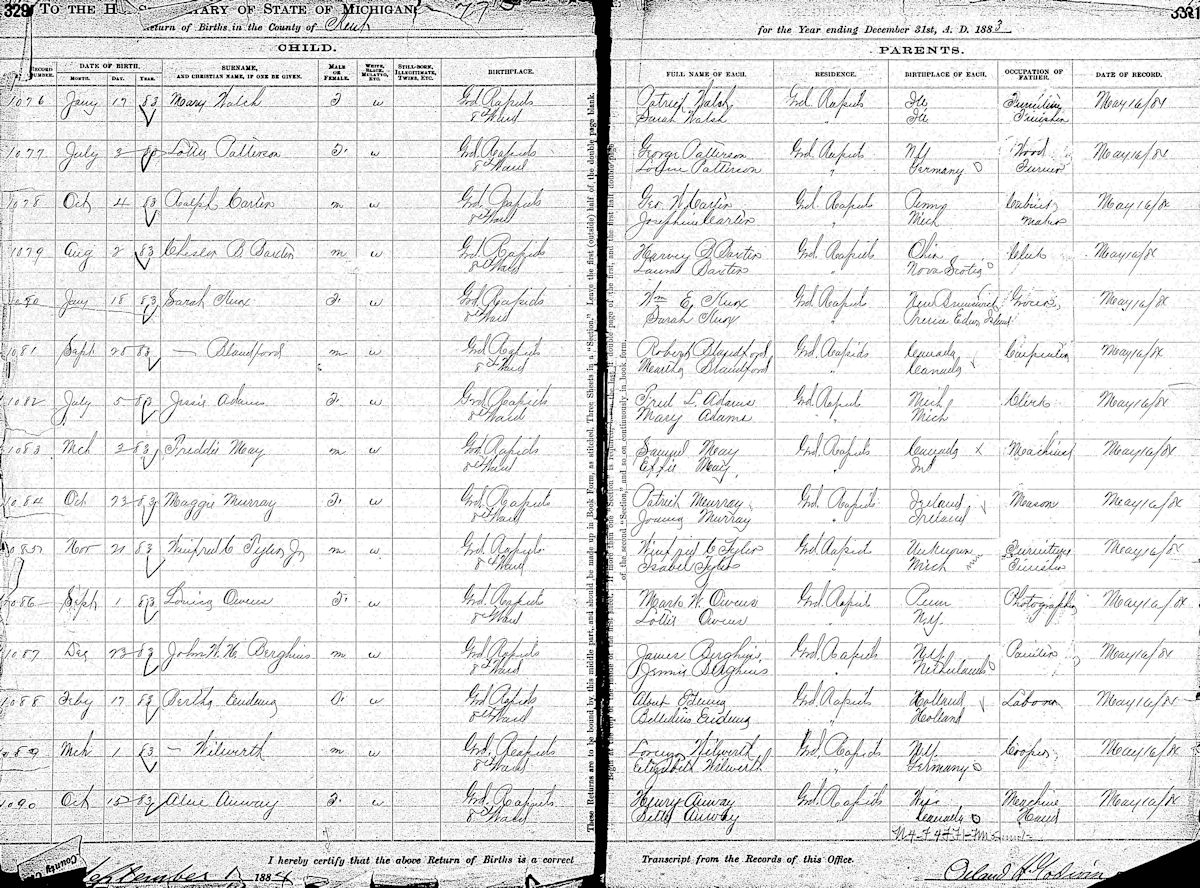 329
TO THE H SECRETARY OF STATE OF MICHIGAN:
77
331
Return of Births in the County of Kent
for the Year ending December 31st, A. D. 1883
CHILD.
PARENTS.
RECORD NUMBER.
DATE OF BIRTH.
MONTH. DAY. YEAR.
SURNAME, AND CHRISTIAN NAME, IF ONE BE GIVEN.
MALE OR FEMALE.
WHITE, BLACK, MULATTO, ETC.
STILL-BORN, ILLEGITIMATE, TWINS, ETC.
BIRTHPLACE.
FULL NAME OF EACH.
RESIDENCE.
BIRTHPLACE OF EACH.
OCCUPATION OF FATHER.
DATE OF RECORD.
1076 Jany 17 83 Mary Walsh F. w Grd Rapids Patrick Walsh Grd Rapids Ire May 16/84
8th Ward Sarah Walsh " Ire Finisher
1077 July 3 Lottie Patterson F. w Grd Rapids George Patterson Grd Rapids NY Wood May 16/84
8th Ward Patterson " Germany Turner
1078 Oct 4 83 Ralph Carlin m w Grd Rapids Geo W. Carlin Grd Rapids Penny Cabinet May 16/84
8th Ward Josephine Carlin " Mich maker
1079 Aug 2 83 B Baxter m w Grd Rapids Harvey B Baxter Grd Rapids Ohio Clerk May 16/84
8th Ward Laura Baxter " Nova Scotia
1080 Jany 18 83 Sarah Knox F. w Grd Rapids Wm E. Knox Grd Rapids New Brunswick Grocer May 16/84
8th Ward Sarah Knox " Prince Edw Island
1081 Sept 25 83 — Blandford m w Grd Rapids Robert Blandford Grd Rapids Canada Carpenter May 16/84
8th Ward Martha Blandford " Canada
1082 July 5 83 Jessie Adams F. w Grd Rapids Fred L. Adams Grd Rapids Mich Clerk May 16/84
8th Ward Mary Adams " Mich
1083 Mch 2 83 Freddie May m w Grd Rapids Samuel May Grd Rapids Canada x Machinist May 16/84
8th Ward Effie May " Ind
1084 Oct 23 83 Maggie Murray F. w Grd Rapids Patrick Murray Grd Rapids Ireland Mason May 16/84
8th Ward Murray " Ireland
1085 Nov 21 83 Winfred C Tyler Jr m w Grd Rapids Winfred C Tyler Grd Rapids Furniture May 16/84
8th Ward Isabel Tyler " Mich Finisher
1086 Sept 1 83 Louisa Owens F. w Grd Rapids Mark W. Owens Grd. Rapids Penn Photographer May 16/84
8th Ward Lottie Owens " NY
1087 Dec 23 83 John W. Berghuis m w Grd Rapids James Berghuis Grd Rapids NY Painter May 16/84
8th Ward Berghuis " Netherlands
1088 Feby 17 83 Bertha F. w Grd Rapids Grd Rapids Holland Laborer May 16/84
8th Ward " Holland
1089 Mch 1 83 — Wilwerth m w Grd. Rapids Wilwerth Grd. Rapids NY Cooper May 16/84
8th Ward Elizabeth Wilwerth " Germany
1090 Oct 83 Auway F. w Grd. Rapids Henry Auway Grd Rapids Wis Machine May 16/84
8th Ward Auway " Canada Hand
These Returns are to be bound by this middle part, and should be made up in Book Form, as stitched, Three Sheets in a "Section." Leave the first (outside) half of the double page blank.
of the second "Section," and so on continuously in book form.
I hereby certify that the above Return of Births is a correct Transcript from the Records of this Office.
September 1, 1884
County